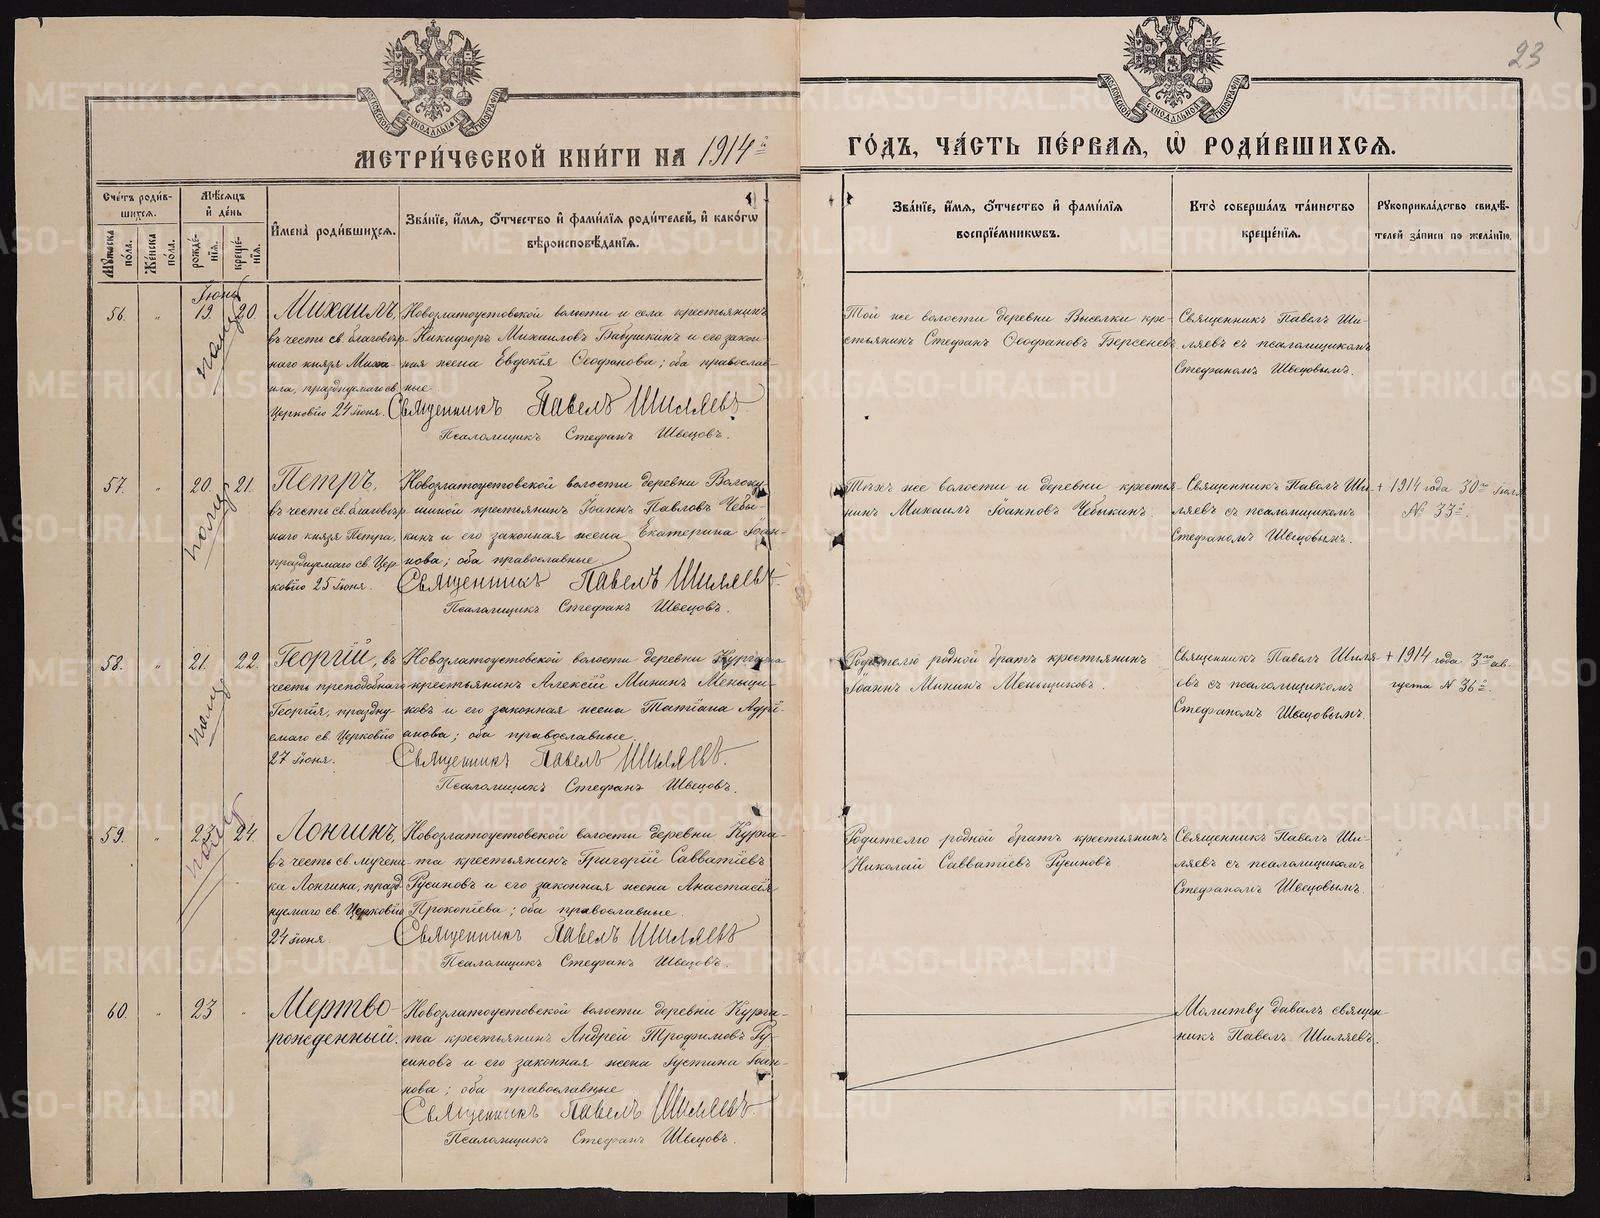 23
МОСКОВСКОЙ СѴНОДАЛЬНОЙ ТИПОГРАФІИ
МОСКОВСКОЙ СѴНОДАЛЬНОЙ ТИПОГРАФІИ
МЕТРИ́ЧЕСКОЙ КНИ́ГИ НА 1914й
ГО́ДЪ, ЧА́СТЬ ПЕ́РВАѦ, Ѡ҆ РОДИ́ВШИХСѦ.
Сче́тъ роди́в-
шихсѧ.
Мѣ́сѧцъ
и҆ де́нь
Мꙋ́жеска по́ла.
Же́нска по́ла.
рожде́-
нїѧ.
креще́-
нїѧ.
И҆мена̀ роди́вшихсѧ.
Зва́нїе, и҆́мѧ, ѻ҆́тчество и҆ фами́лїѧ роди́телей, и҆ како́гѡ
вѣроисповѣ́данїѧ.
Зва́нїе, и҆́мѧ, ѻ҆́тчество и҆ фами́лїѧ
воспрїе́мникѡвъ.
Кто̀ соверша́лъ та́инство
креще́нїѧ.
Рꙋкоприкла́дство свидѣ́-
телей за́писи по жела́нїю.
Іюнь
56. " 19. 20.
Михаилъ,
въ честь св. благовѣр
наго князя Миха-
ила, празднуемаго св.
Церковію 24 іюня.
Новозлатоустовской волости и села крестьянинъ
Никифоръ Михаиловъ Бабушкинъ и его закон
ная жена Евдокія Ѳеофанова; оба православ-
ные
Священникъ Павелъ Шиляевъ
Псаломщикъ Стефанъ Швецовъ.
Той же волости деревни Выселки кре-
стьянинъ Стефанъ Ѳеофановъ Берсеневъ
Священникъ Павелъ Ши-
ляевъ съ псаломщикомъ
Стефаномъ Швецовымъ.
57. " 20. 21.
Петръ,
въ честь св. благовѣр
наго князя Петра,
празднуемаго св. Цер
ковію 25 іюня.
Новозлатоустовской волости деревни Волоку-
шиной крестьянинъ Іоаннъ Павловъ Чебы-
кинъ и его законная жена Екатерина Іоан-
нова; оба православные
Священникъ Павелъ Шиляевъ
Псаломщикъ Стефанъ Швецовъ.
Тѣхъ же волости и деревни крестья-
нинъ Михаилъ Іоанновъ Чебыкинъ.
Священникъ Павелъ Ши-
ляевъ съ псаломщикомъ
Стефаномъ Швецовымъ.
+ 1914 года 30го іюля
№ 33й.
58. " 21. 22.
Георгій, въ
честь преподобнаго
Георгія, праздну-
емаго св. Церковію
27 іюня.
Новозлатоустовской волости деревни Кургата
крестьянинъ Алексій Мининъ Меньщи-
ковъ и его законная жена Татіана Адрі-
анова; оба православные.
Священникъ Павелъ Шиляевъ.
Псаломщикъ Стефанъ Швецовъ.
Родителю родной братъ крестьянинъ
Іоаннъ Мининъ Меньщиковъ.
Священникъ Павелъ Шиля
евъ съ псаломщикомъ
Стефаномъ Швецовымъ.
+ 1914 года 3го ав-
густа № 36й.
59. " 23. 24.
Лонгинъ,
въ честь св. мучени
ка Лонгина, празд
нуемаго св. Церковію
24 іюня.
Новозлатоустовской волости деревни Курга-
та крестьянинъ Григорій Савватіевъ
Русиновъ и его законная жена Анастасія
Прокопіева; оба православные.
Священникъ Павелъ Шиляевъ
Псаломщикъ Стефанъ Швецовъ.
Родителю родной братъ крестьянинъ
Николай Савватіевъ Русиновъ.
Священникъ Павелъ Ши-
ляевъ съ псаломщикомъ
Стефаномъ Швецовымъ.
60. " 23 "
Мертво
рожденный.
Новозлатоустовской волости деревни Курга-
та крестьянинъ Андрей Трофимовъ Ру-
синовъ и его законная жена Іустина Іоан-
нова; оба православные
Священникъ Павелъ Шиляевъ.
Псаломщикъ Стефанъ Швецовъ.
Молитву давалъ священ-
никъ Павелъ Шиляевъ.
METRIKI.GASO-URAL.RU